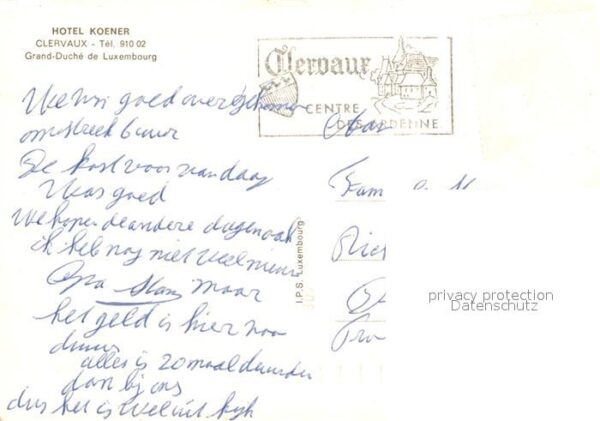 HOTEL KOENER
CLERVAUX - Tél. 910 02
Grand-Duché de Luxembourg
Clervaux
CENTRE
DES ARDENNE
goed overgekomen
omstreek 6 uur
De kost voor vandaag
Was goed
We hopen de andere dagen ook
ik heb nog niet veel nieuws
Opa maar
het geld is hier
alles is 20 maal duurder
dan bij ons
dus het is wel uit
Fam
I.P.S. Luxembourg
privacy protection
Datenschutz